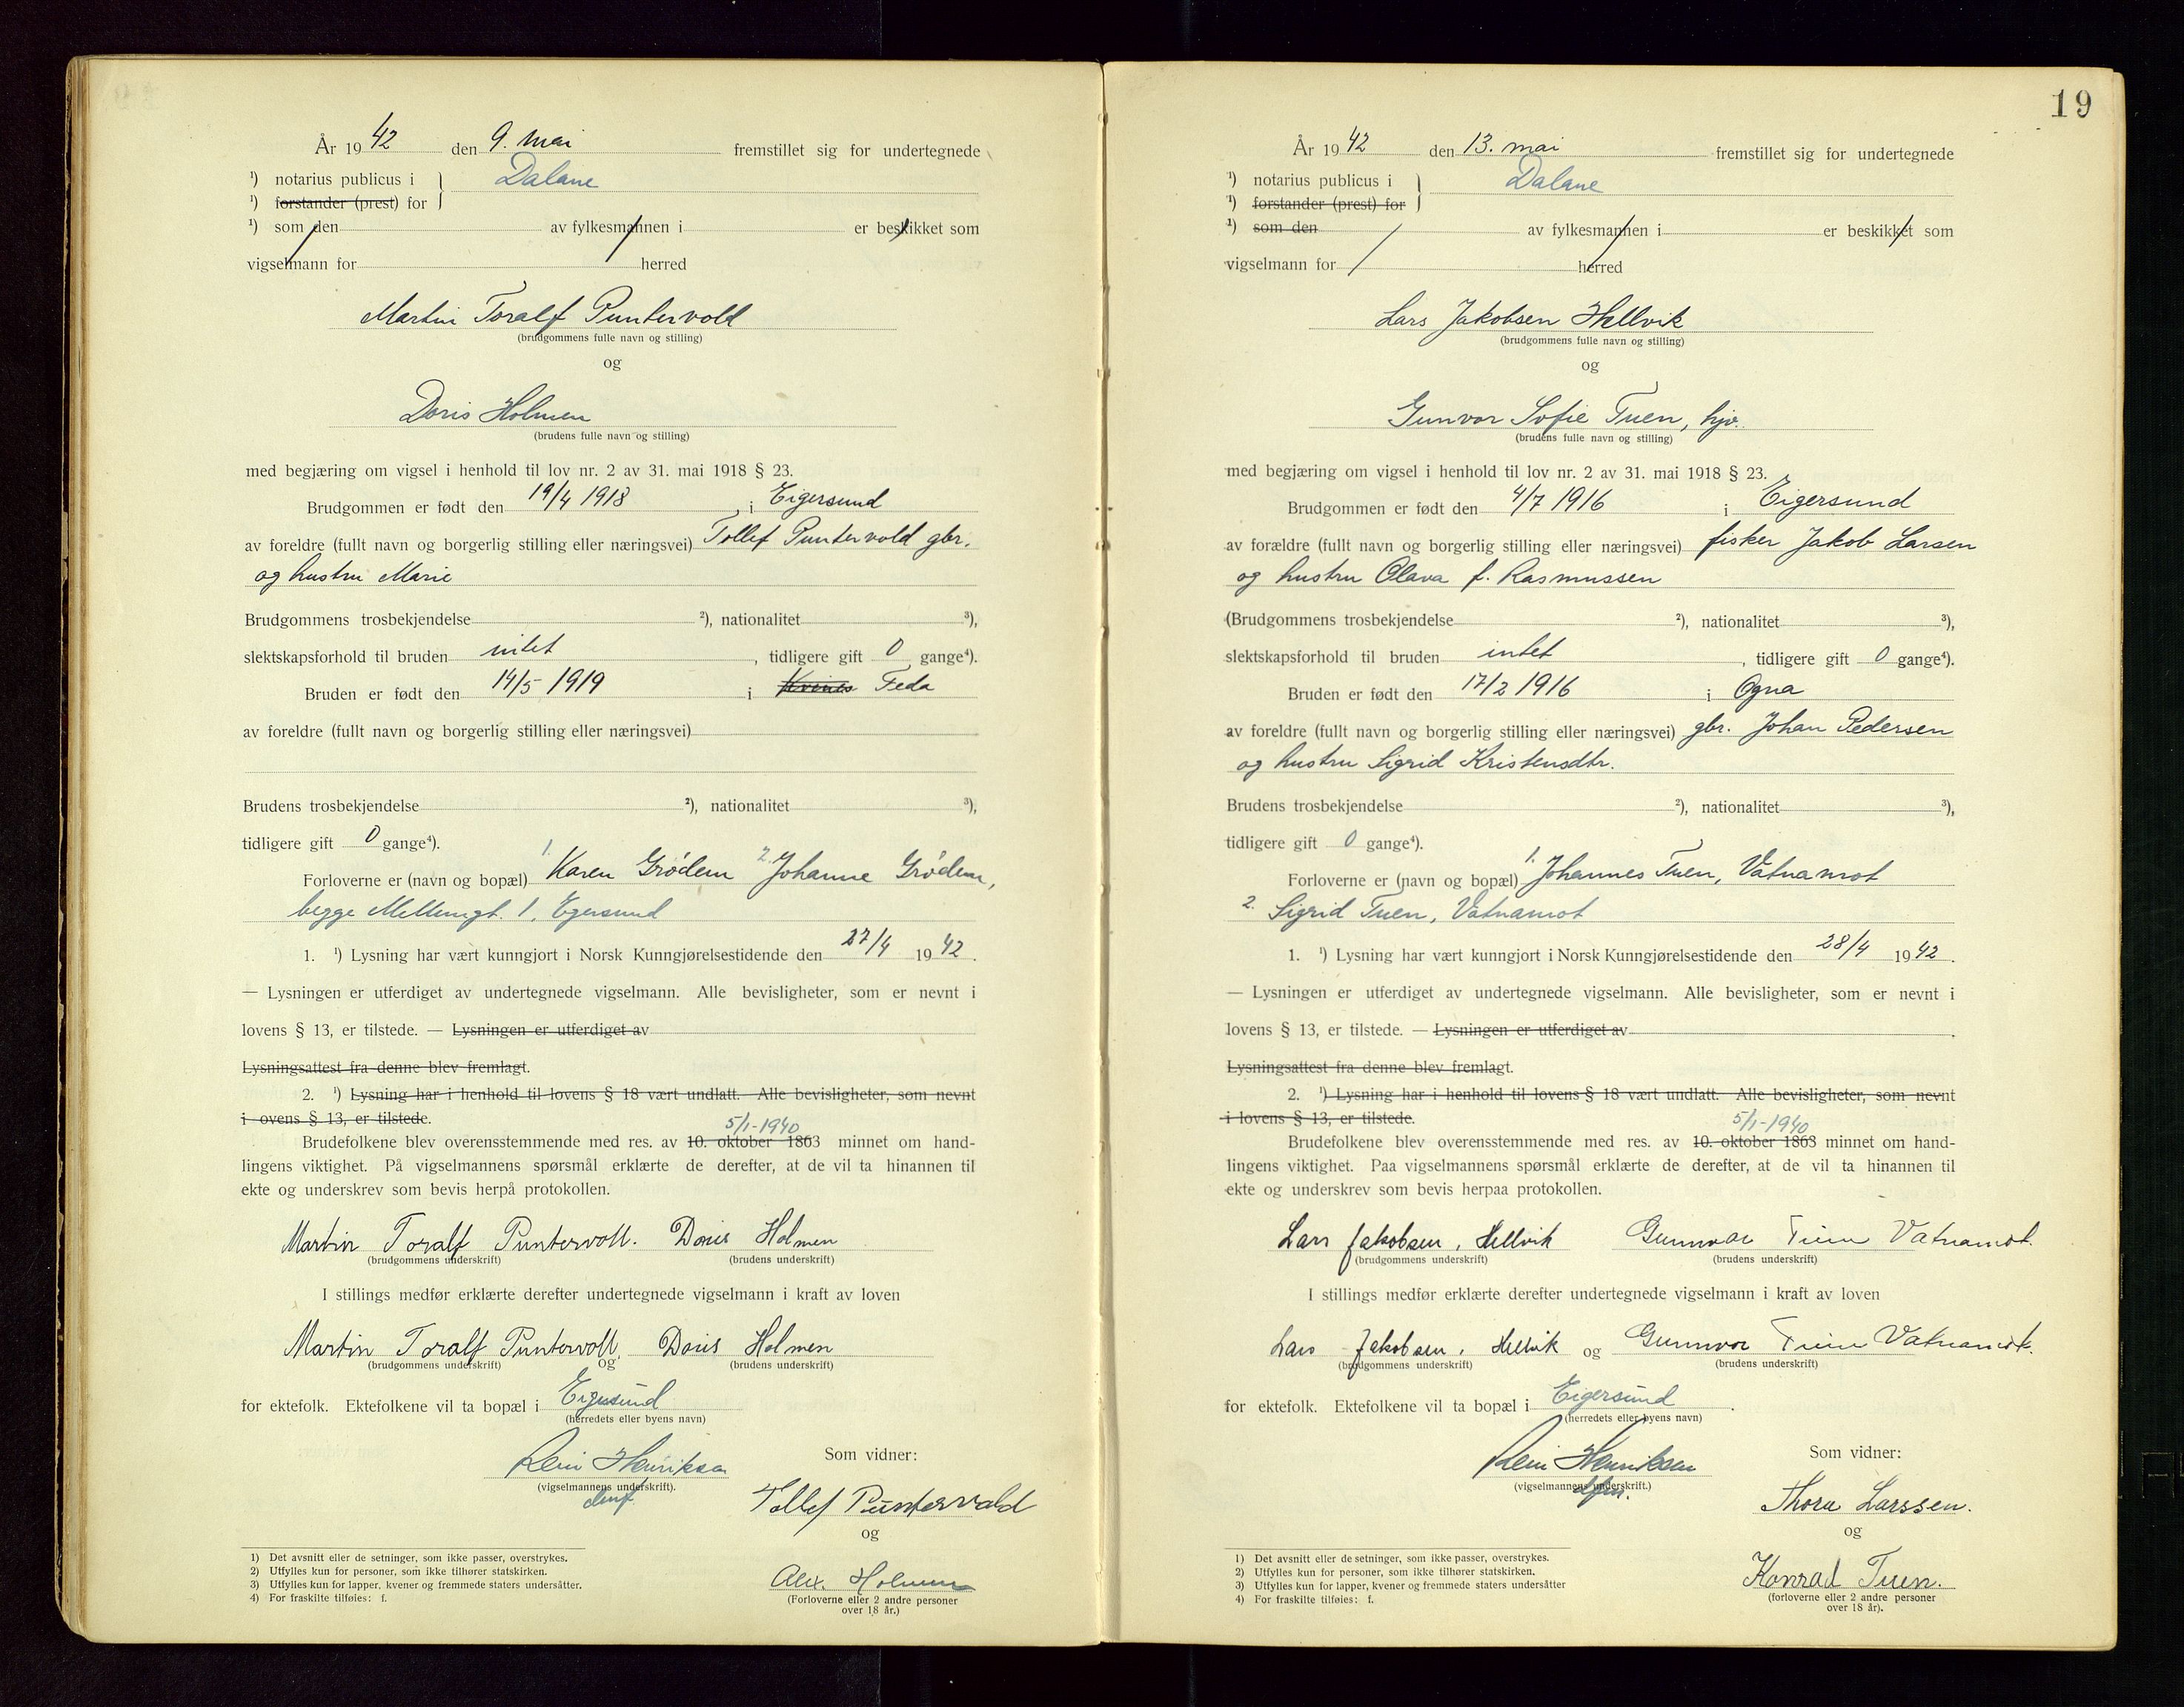 År 1942 den 9. mai fremstillet sig for undertegnede
¹) notarius publicus i } Dalane
¹) forstander (prest) for
¹) som den av fylkesmannen i er beskikket som
vigselmann for herred
Martin Toralf Puntervold
(brudgommens fulle navn og stilling)
og
Doris Holmen
(brudens fulle navn og stilling)
med begjæring om vigsel i henhold til lov nr. 2 av 31. mai 1918 § 23.
Brudgommen er født den 19/4 1918, i Eigersund
av foreldre (fullt navn og borgerlig stilling eller næringsvei) Tollef Puntervold gbr.
og hustru Marie
Brudgommens trosbekjendelse ²), nationalitet ³),
slektskapsforhold til bruden intet, tidligere gift 0 gange⁴).
Bruden er født den 14/5 1919 i Kvines Feda
av foreldre (fullt navn og borgerlig stilling eller næringsvei)
Brudens trosbekjendelse ²), nationalitet ³),
tidligere gift 0 gange⁴).
Forloverne er (navn og bopæl) 1. Karen Grødem 2. Johanne Grødem,
begge Mellemgt. 1, Egersund
1. ¹) Lysning har vært kunngjort i Norsk Kunngjørelsestidende den 27/4 1942.
— Lysningen er utferdiget av undertegnede vigselmann. Alle bevisligheter, som er nevnt i
lovens § 13, er tilstede. — Lysningen er utferdiget av
Lysningsattest fra denne blev fremlagt.
2. ¹) Lysning har i henhold til lovens § 18 vært undlatt. Alle bevisligheter, som nevnt
i ovens § 13, er tilstede.
5/1-1940
Brudefolkene blev overensstemmende med res. av 10. oktober 1863 minnet om hand-
lingens viktighet. På vigselmannens spørsmål erklærte de derefter, at de vil ta hinannen til
ekte og underskrev som bevis herpå protokollen.
Martin Toralf Puntervoll. Doris Holmen
(brudgommens underskrift) (brudens underskrift)
I stillings medfør erklærte derefter undertegnede vigselmann i kraft av loven
Martin Toralf Puntervoll, og Doris Holmen
(brudgommens underskrift) (brudens underskrift)
for ektefolk. Ektefolkene vil ta bopæl i Eigersund
(herredets eller byens navn)
Rein Henriksen
(vigselmannens underskrift).
Som vidner:
Tollef Puntervold
og
Alex. Holmen
(Forloverne eller 2 andre personer
over 18 år.)
1) Det avsnitt eller de setninger, som ikke passer, overstrykes.
2) Utfylles kun for personer, som ikke tilhører statskirken.
3) Utfylles kun for lapper, kvener og fremmede staters undersåtter.
4) For fraskilte tilføies: f.
19
År 1942 den 13. mai fremstillet sig for undertegnede
¹) notarius publicus i } Dalane
¹) forstander (prest) for
¹) som den av fylkesmannen i er beskikket som
vigselmann for herred
Lars Jakobsen Hellvik
(brudgommens fulle navn og stilling)
og
Gunvor Sofie Tuen, hjv.
(brudens fulle navn og stilling)
med begjæring om vigsel i henhold til lov nr. 2 av 31. mai 1918 § 23.
Brudgommen er født den 4/7 1916 i Eigersund
av forældre (fullt navn og borgerlig stilling eller næringsvei) fisker Jakob Larsen
og hustru Olava f. Rasmussen
(Brudgommens trosbekjendelse ²), nationalitet ³),
slektskapsforhold til bruden intet, tidligere gift 0 gange⁴).
Bruden er født den 17/2 1916, i Ogna
av foreldre (fullt navn og borgerlig stilling eller næringsvei) gbr. Johan Pedersen
og hustru Sigrid Kristensdtr.
Brudens trosbekjendelse ²), nationalitet ³),
tidligere gift 0 gange⁴).
Forloverne er (navn og bopæl) 1. Johannes Tuen, Vatnamot
2. Sigrid Tuen, Vatnamot
1. ¹) Lysning har vært kunngjort i Norsk Kunngjørelsestidende den 28/4 1942.
— Lysningen er utferdiget av undertegnede vigselmann. Alle bevisligheter, som er nevnt i
lovens § 13, er tilstede. — Lysningen er utferdiget av .
Lysningsattest fra denne blev fremlagt.
2. ¹) Lysning har i henhold til lovens § 18 vært undlatt. Alle bevisligheter, som nevnt
i lovens § 13, er tilstede.
5/1-1940
Brudefolkene blev overensstemmende med res. av 10. oktober 1863 minnet om hand-
lingens viktighet. Paa vigselmannens spørsmål erklærte de derefter, at de vil ta hinannen til
ekte og underskrev som bevis herpaa protokollen.
Lars Jakobsen, Hellvik Gunnvor Tuen Vatnamot.
(brudgommens underskrift) (brudens underskrift)
I stillings medfør erklærte derefter undertegnede vigselmann i kraft av loven
Lars Jakobsen, Hellvik og Gunnvor Tuen Vatnamot.
(brudgommens underskrift) (brudens underskrift)
for ektefolk. Ektefolkene vil ta bopæl i Eigersund.
(herredets eller byens navn)
Rein Henriksen
(vigselmannens underskrift.)
Som vidner:
Thora Larssen.
og
Konrad Tuen.
(forloverne eller 2 andre personer
over 18 år).
1) Det avsnitt eller de setninger, som ikke passer, overstrykes.
2) Utfylles kun for personer, som ikke tilhører statskirken.
3) Utfylles kun for lapper, kvener og fremmede staters undersåtter
4) For fraskilte tilføies: f.